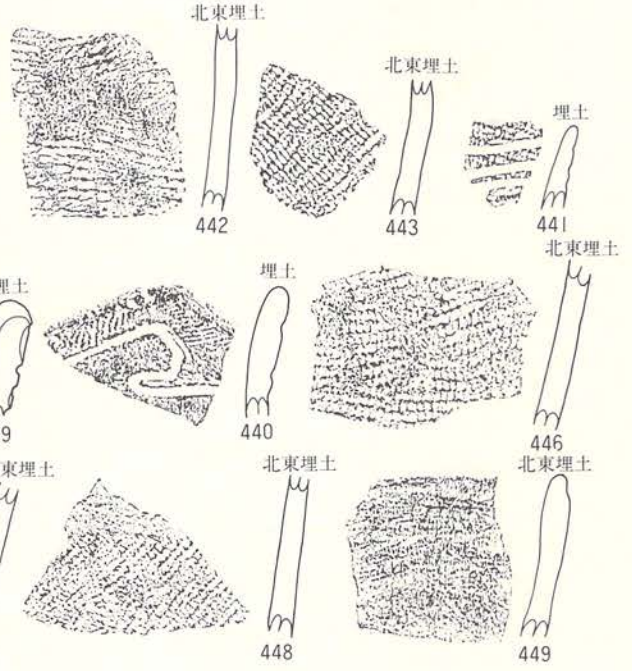 北東埋土
442
北東埋土
443
埋土
441
埋土
9
埋土
440
北東埋土
446
東埋土
北東埋土
448
北東埋土
449